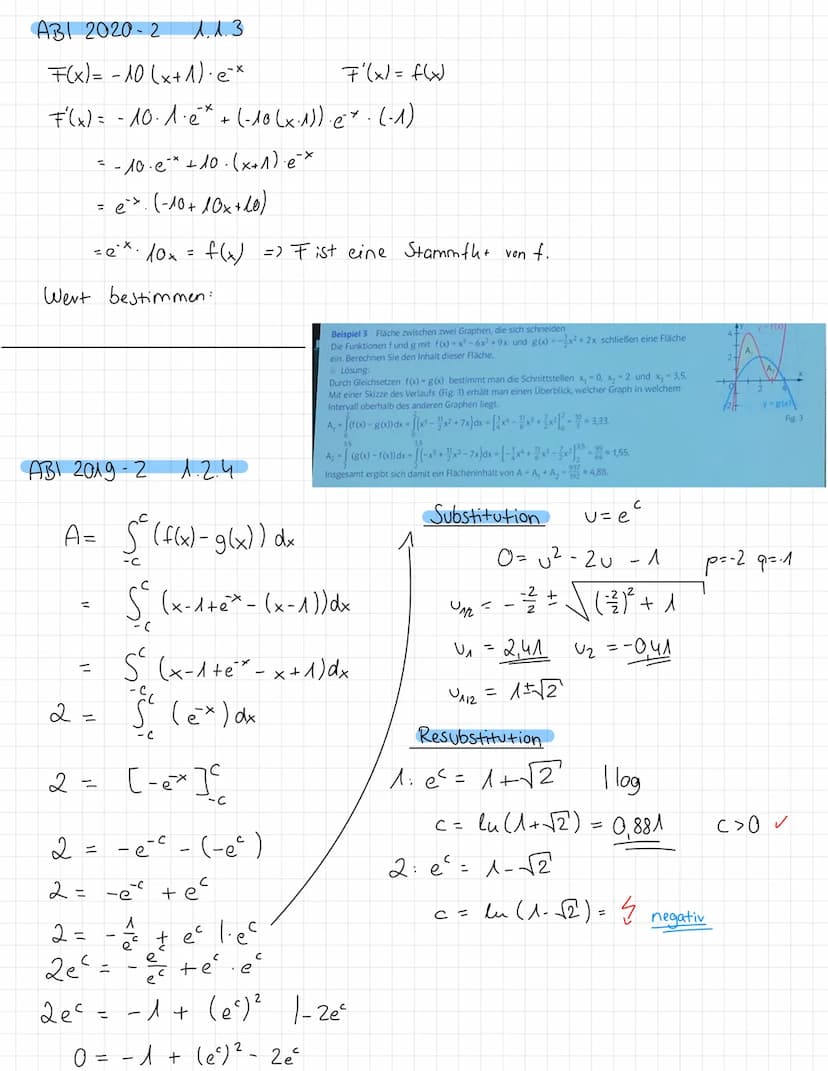 ABI 2020-2 1.1.3
F(x) = -10(x+1)·e^-x F'(x) = f(x)
F'(x) = -10·1·e^-x + (-10(x·1))·e^-x·(-1)
= -10·e^-x + 10·(x+1)·e^-x
= e^-x·(-10 + 10x + 10)
= e^-x·10x = f(x) => F ist eine Stammfkt von f.
Wert bestimmen:
Beispiel 3 Fläche zwischen zwei Graphen, die sich schneiden
Die Funktionen f und g mit f(x) = x³ - 6x² + 9x und g(x) = -½x² + 2x schließen eine Fläche
ein. Berechnen Sie den Inhalt dieser Fläche.
Lösung:
Durch Gleichsetzen f(x) = g(x) bestimmt man die Schnittstellen x₁ = 0, x₂ = 2 und x₃ = 3,5.
Mit einer Skizze des Verlaufs (Fig. 3) erhält man einen Überblick, welcher Graph in welchem
Intervall oberhalb des anderen Graphen liegt.
A₁ = ∫(f(x) - g(x))dx = ∫(x³ - 11/2 x² + 7x)dx = [1/4 x⁴ - 11/6 x³ + 7/2 x²] = 10/3 ≈ 3,33.
A₂ = ∫(g(x) - f(x))dx = ∫(-x³ + 11/2 x² - 7x)dx = [-1/4 x⁴ + 11/6 x³ - 7/2 x²] ≈ 1,55.
Insgesamt ergibt sich damit ein Flächeninhalt von A = A₁ + A₂ ≈ 4,88.
y = f(x)
A₁
A₂
y = g(x)
Fig. 3
ABI 2019-2 1.2.4
A = ∫_-c^c (f(x) - g(x)) dx
= ∫_-c^c (x-1+e^-x - (x-1))dx
= ∫_-c^c (x-1+e^-x - x+1)dx
2 = ∫_-c^c (e^-x)dx
2 = [-e^-x]_-c^c
2 = -e^-c - (-e^c)
2 = -e^-c + e^c
2 = -1/e^c + e^c |·e^c
2e^c = -e^c/e^c + e^c·e^c
2e^c = -1 + (e^c)² |-2e^c
0 = -1 + (e^c)² - 2e^c
Substitution u = e^c
0 = u² - 2u - 1 p=-2 q=-1
u₁/₂ = - -2/2 ± √((-2/2)² + 1)
u₁ = 2,41 u₂ = -0,41
u₁/₂ = 1±√2
Resubstitution
1: e^c = 1+√2 | log
c = ln(1+√2) = 0,881 c>0 ✓
2: e^c = 1-√2
c = ln(1-√2) = ↯ negativ